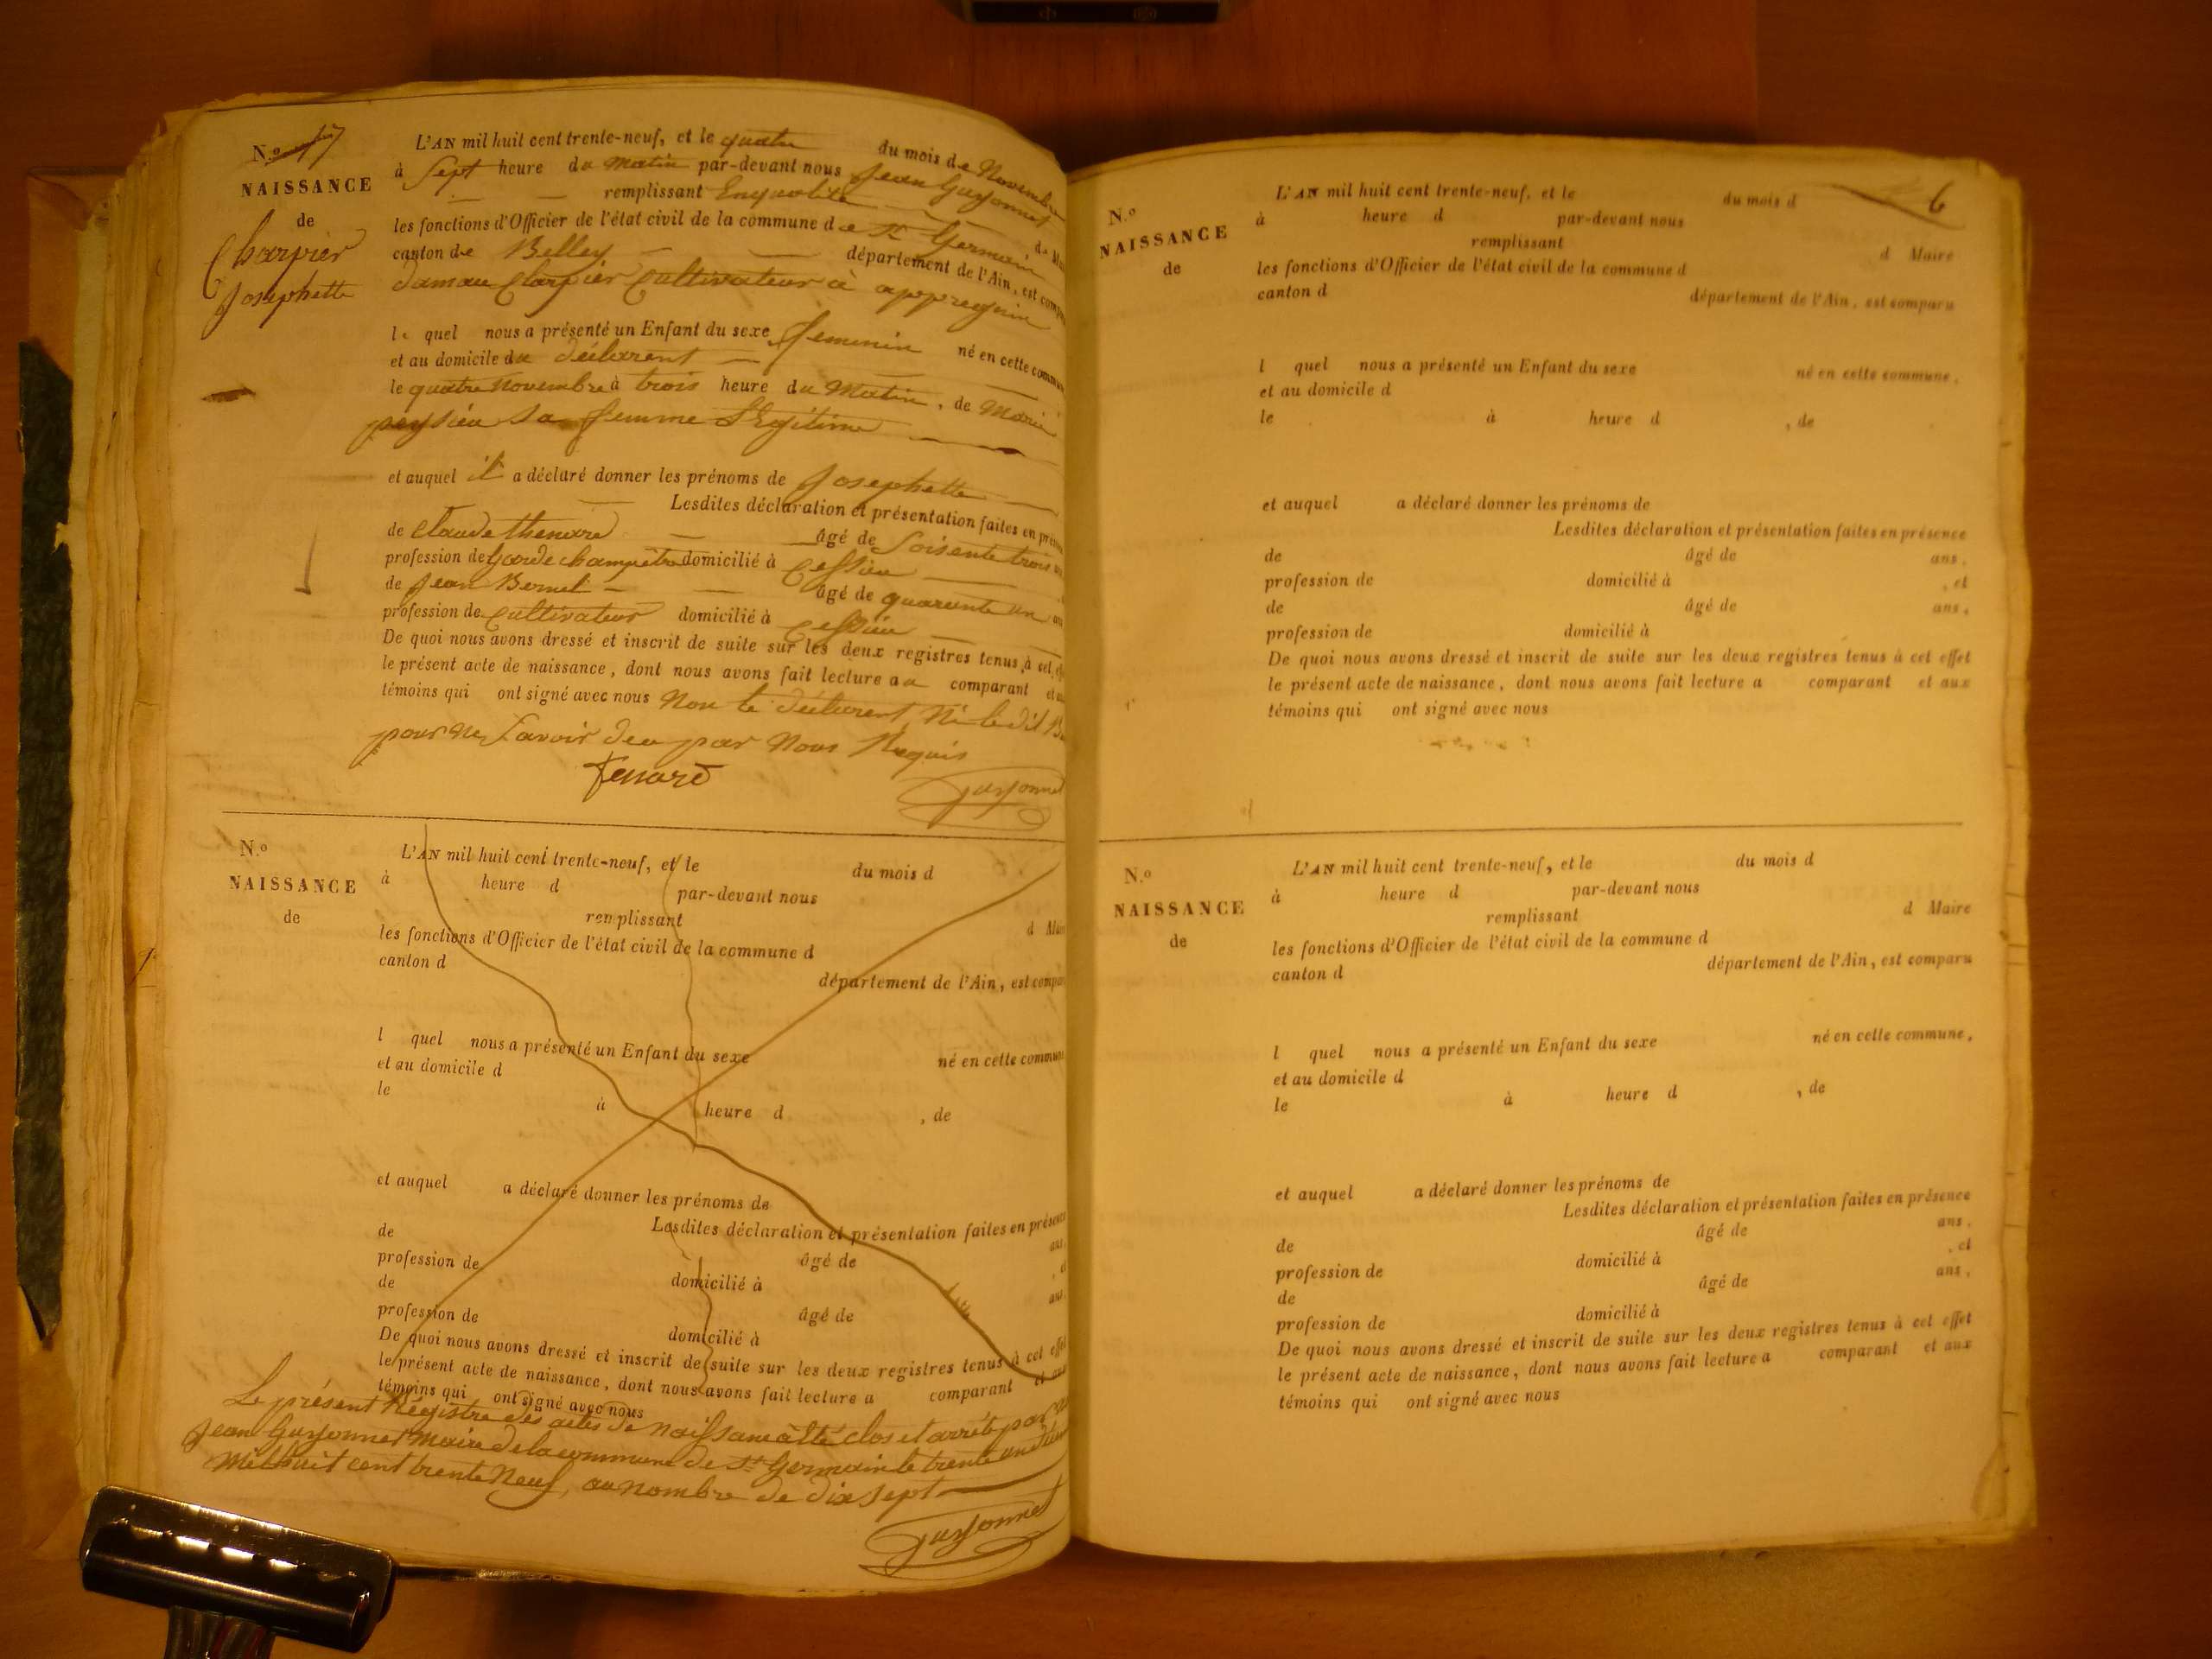 N.º 17
NAISSANCE
de
Charpier
Josephette
L'AN mil huit cent trente-neuf, et le quatre du mois de Novembre
à Sept heure du Matin par-devant nous Jean Guyonnet
remplissant En qualité de
les fonctions d'Officier de l'état civil de la commune de St Germain
canton de Belley département de l'Ain, est
Charpier Cultivateur à appregnin
le quel nous a présenté un Enfant du sexe feminin né en cette
et au domicile du déclarent
le quatre Novembre à trois heure du Matin, de Marie
peysieu Sa femme Légitime
et auquel il a déclaré donner les prénoms de Josephette
Lesdites déclaration et présentation faites en
de Claude thenard âgé de Soisente trois
profession de Garde champêtre domicilié à Cessieu
de Jean Bernet âgé de quarente un
profession de Cultivateur domicilié à Cessieu
De quoi nous avons dressé et inscrit de suite sur les deux registres tenus à cet
le présent acte de naissance, dont nous avons fait lecture au comparant et
témoins qui ont signé avec nous Non le déclarent, Ni le dit
pour ne Savoir deu par Nous Requis
Tenard
Guyonnet
N.º
NAISSANCE
de
L'AN mil huit cent trente-neuf, et le du mois d
à heure d par-devant nous
remplissant d Maire
les fonctions d'Officier de l'état civil de la commune d
canton d département de l'Ain, est
l quel nous a présenté un Enfant du sexe né en cette commune
et au domicile d
le à heure d , de
et auquel a déclaré donner les prénoms de
Lesdites déclaration et présentation faites en présence
de âgé de ans,
profession de domicilié à
de âgé de ans,
profession de domicilié à
De quoi nous avons dressé et inscrit de suite sur les deux registres tenus à cet effet
le présent acte de naissance, dont nous avons fait lecture a comparant et aux
témoins qui ont signé avec nous
Le présent Régistre des actes de naissance a été clos et arrêté par
Jean Guyonnet Maire de la commune de St Germain le trente un
Mil huit cent trente Neuf, au nombre de dix sept
Guyonnet
6
N.º
NAISSANCE
de
L'AN mil huit cent trente-neuf, et le du mois d
à heure d par-devant nous
remplissant d Maire
les fonctions d'Officier de l'état civil de la commune d
canton d département de l'Ain, est comparu
l quel nous a présenté un Enfant du sexe né en cette commune,
et au domicile d
le à heure d , de
et auquel a déclaré donner les prénoms de
Lesdites déclaration et présentation faites en présence
de âgé de ans,
profession de domicilié à , et
de âgé de ans,
profession de domicilié à
De quoi nous avons dressé et inscrit de suite sur les deux registres tenus à cet effet
le présent acte de naissance, dont nous avons fait lecture a comparant et aux
témoins qui ont signé avec nous
N.º
NAISSANCE
de
L'AN mil huit cent trente-neuf, et le du mois d
à heure d par-devant nous
remplissant d Maire
les fonctions d'Officier de l'état civil de la commune d
canton d département de l'Ain, est comparu
l quel nous a présenté un Enfant du sexe né en cette commune,
et au domicile d
le à heure d , de
et auquel a déclaré donner les prénoms de
Lesdites déclaration et présentation faites en présence
de âgé de ans,
profession de domicilié à , et
de âgé de ans,
profession de domicilié à
De quoi nous avons dressé et inscrit de suite sur les deux registres tenus à cet effet
le présent acte de naissance, dont nous avons fait lecture a comparant et aux
témoins qui ont signé avec nous